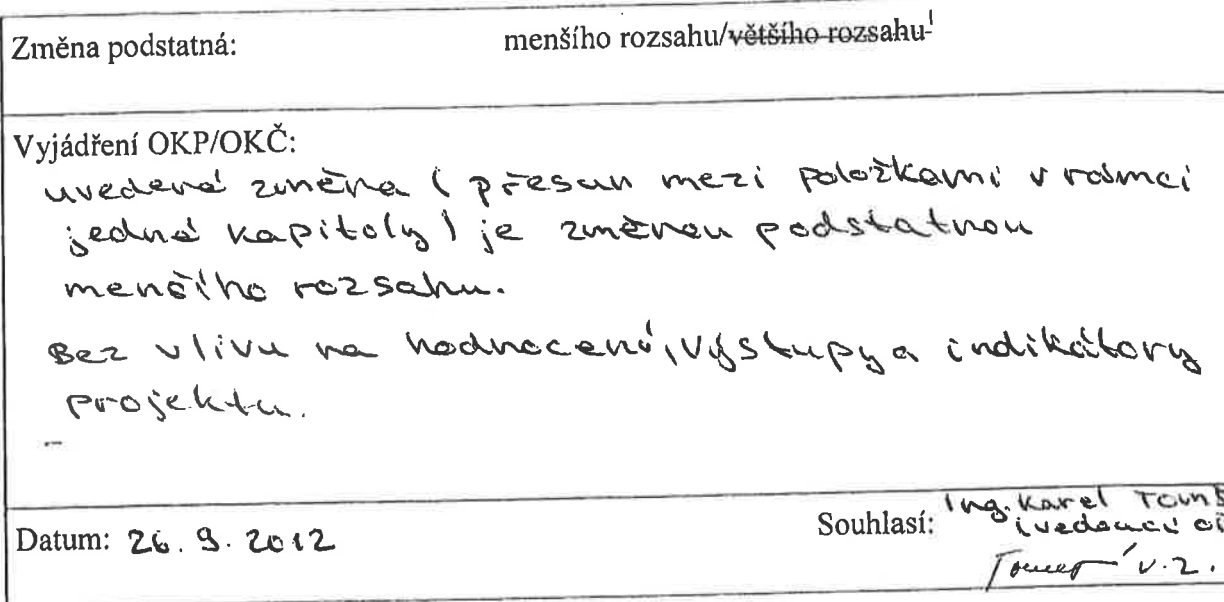 Změna podstatná: menšího rozsahu/většího rozsahu¹
Vyjádření OKP/OKČ:
uvedená změna (přesun mezi položkami v rámci
jedné kapitoly) je změnou podstatnou
menšího rozsahu.
Bez vlivu na hodnocení, výstupy a indikátory
projektu.
Datum: 26. 9. 2012 Souhlasí: Ing. Karel
v.z.